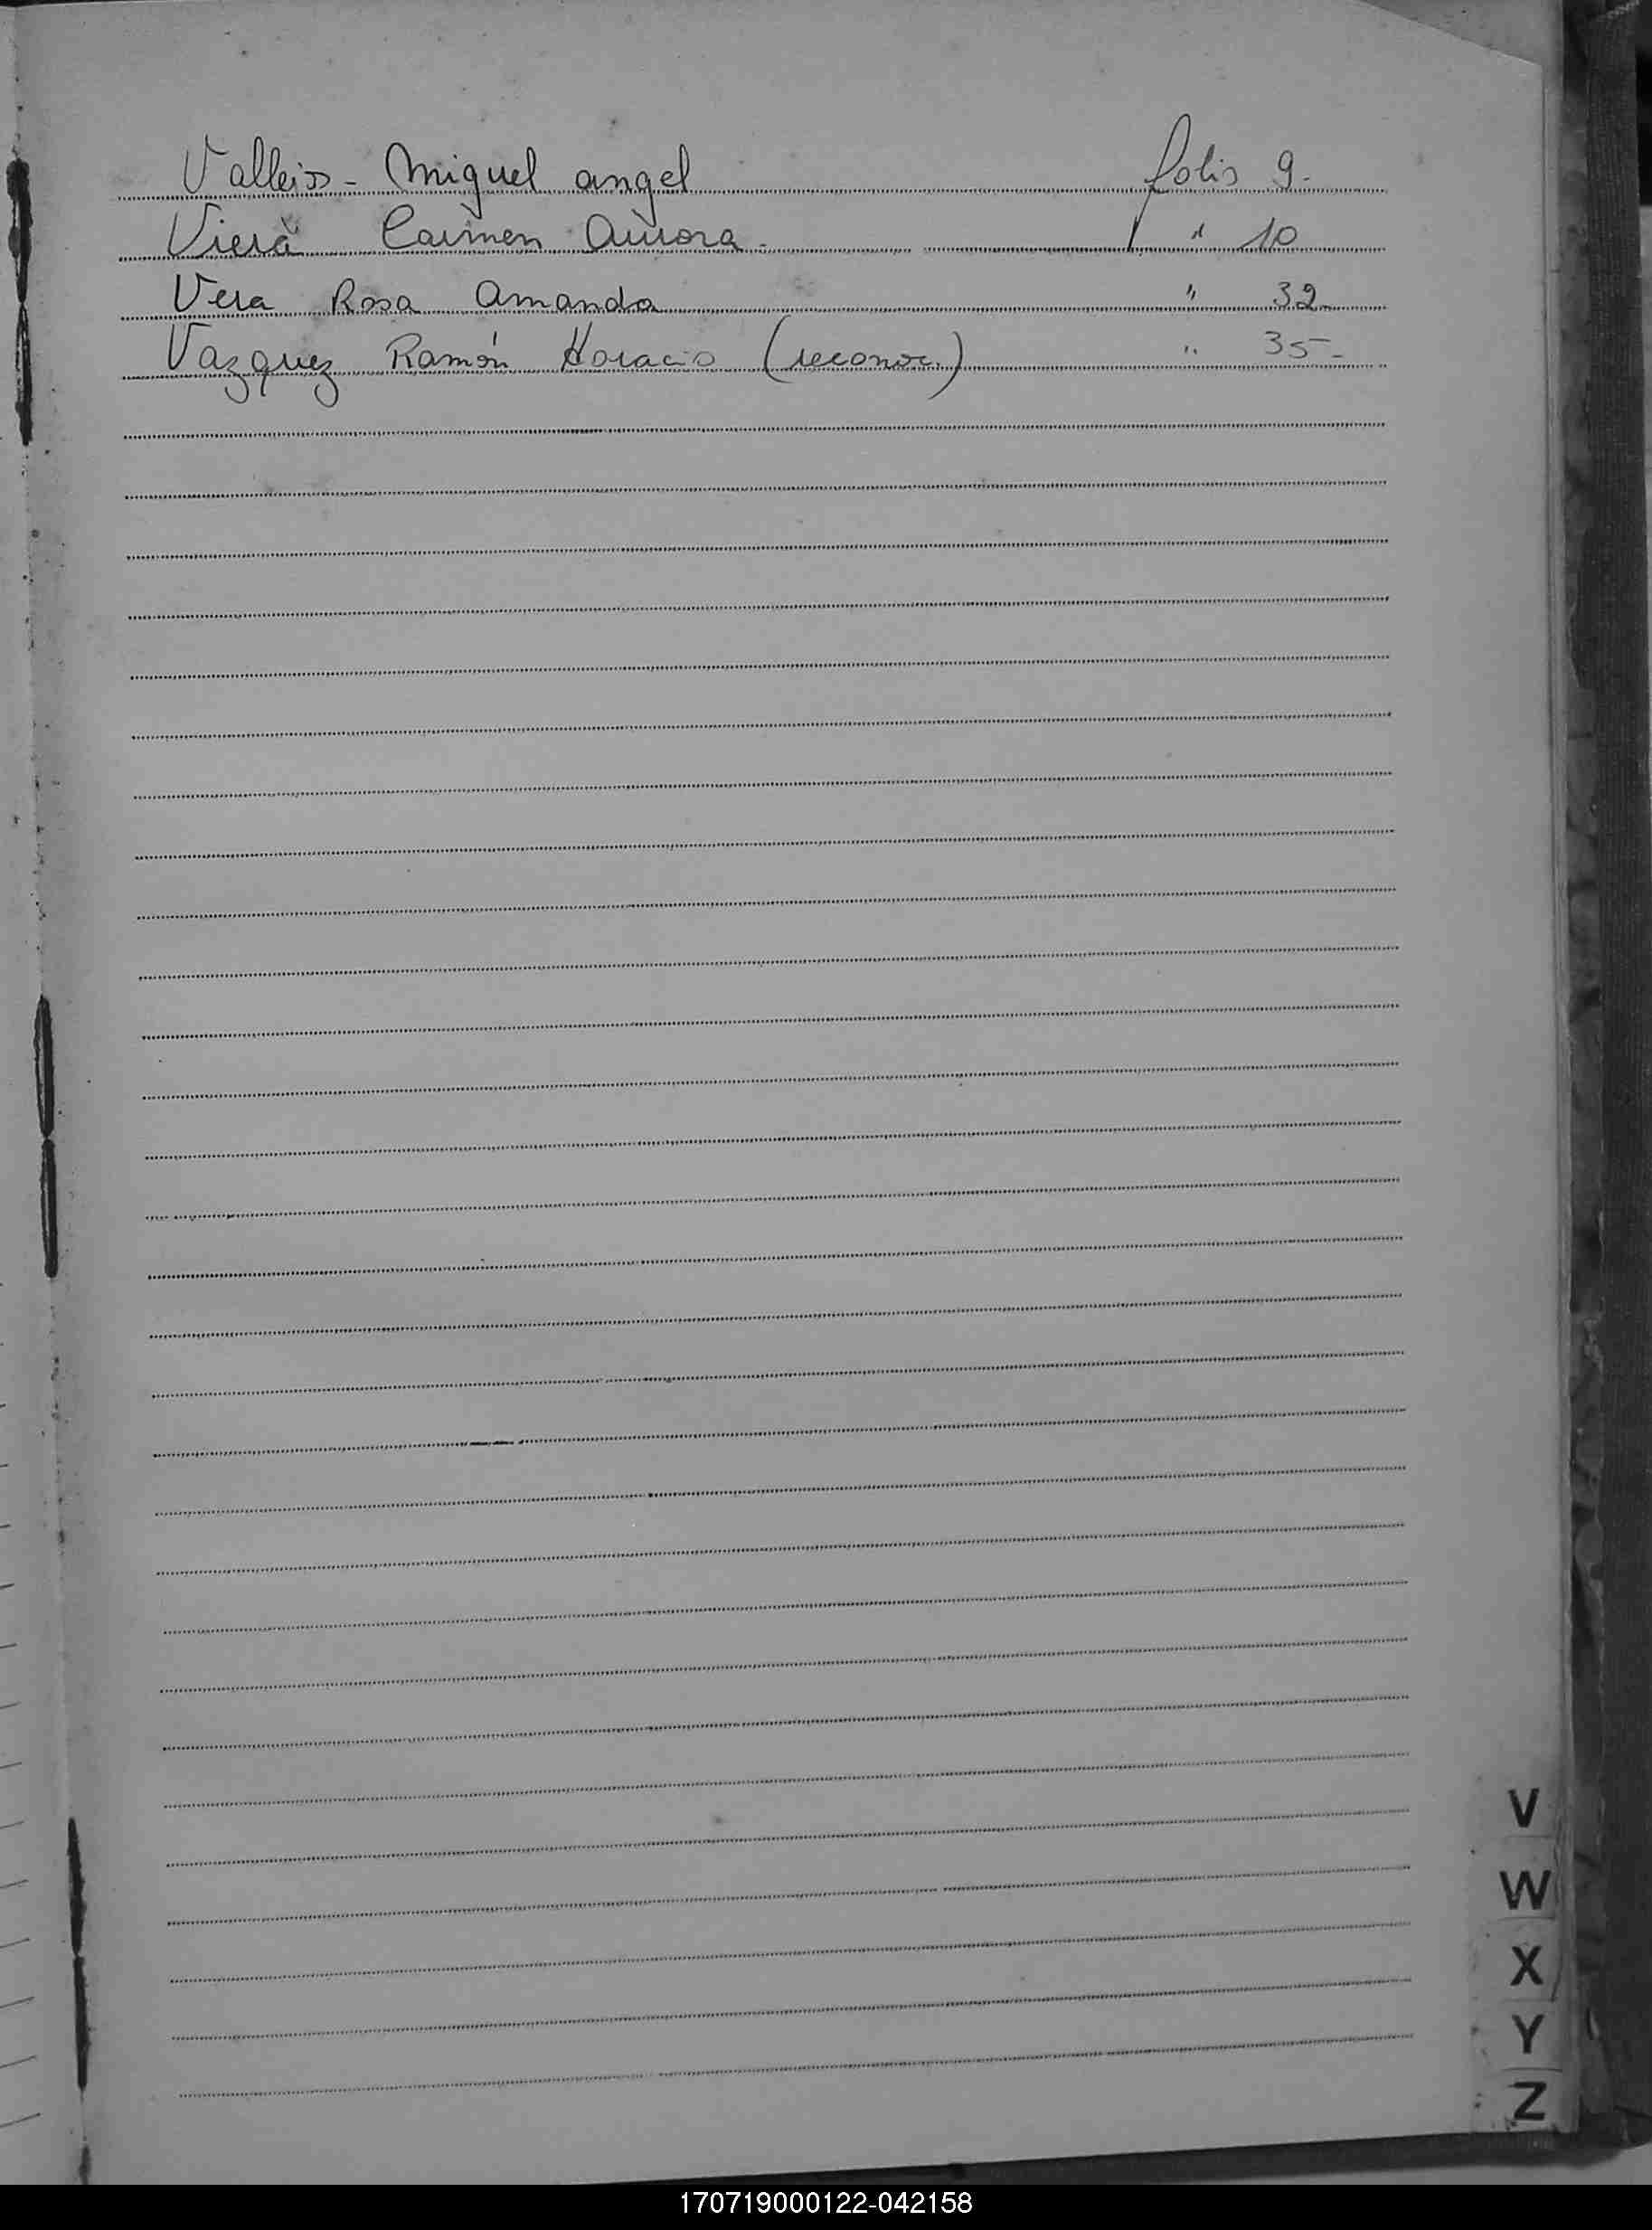 Vallejo - Miguel angel folio 9.
Viera Carmen Aurora. " 10
Vera Rosa Amanda " 32
Vazquez Ramón Horacio (reconoc.) " 35-
V
W
X
Y
Z
170719000122-042158